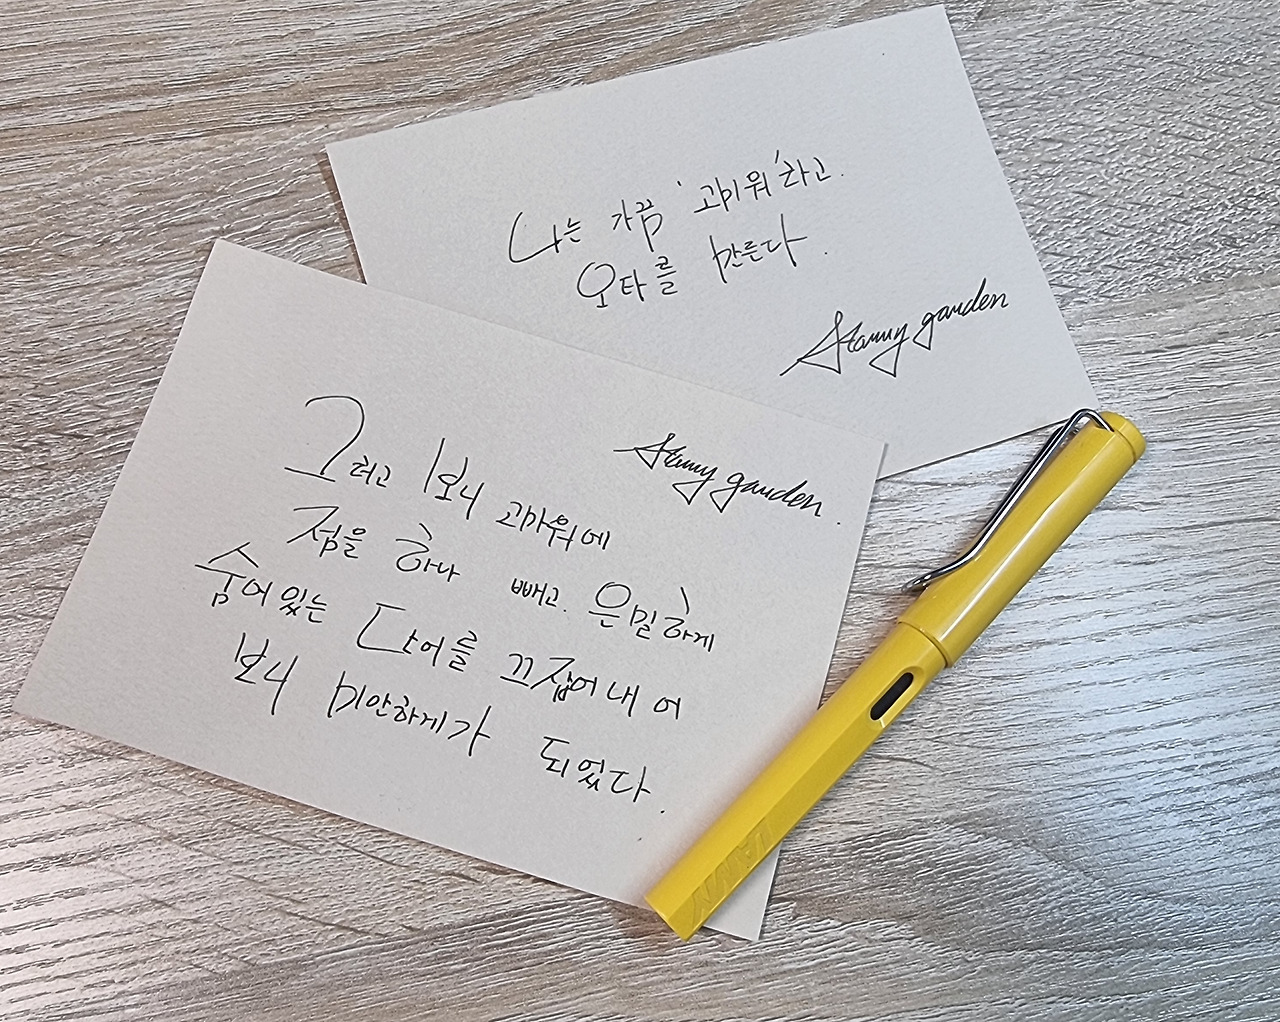 나는 가끔 '고미워'라고
오타를 만든다.
Starry garden
Starry garden.
그러고 보니 고마워에
점을 하나 빼고. 은밀하게
숨어있는 단어를 끄집어내 어
보니 미안하게가 되었다.
LAMY